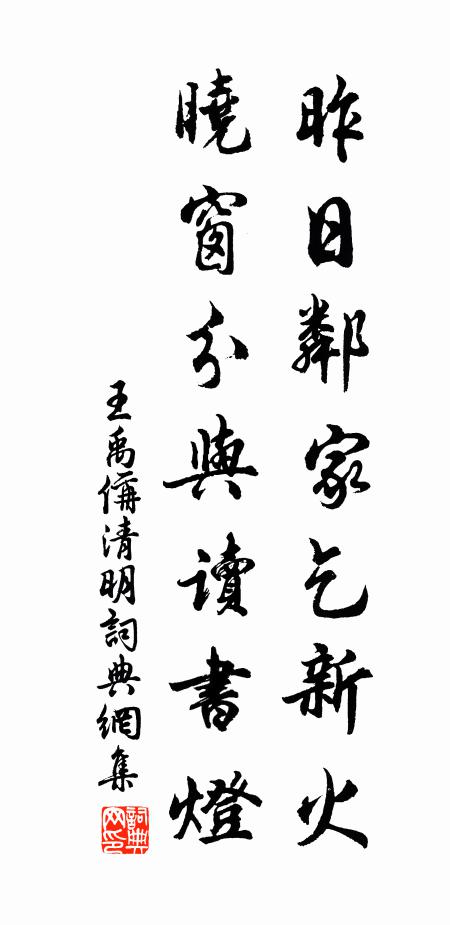 昨日鄰家乞新火
曉窗分與讀書燈
王禹偁清明詞典網集
詞典網印